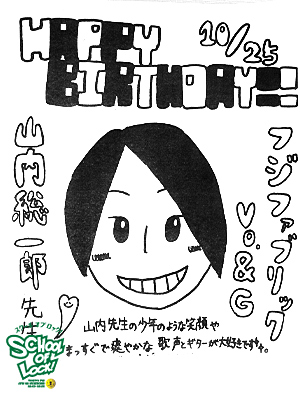 HAPPY
BIRTHDAY!!
10/25
フジファブリック
Vo.&G
山内総一郎先生
山内先生の少年のような笑顔や
まっすぐで爽やかな歌声とギターが大好きです。
スクール オブ ロック
SCHOOL
OF
LOCK!